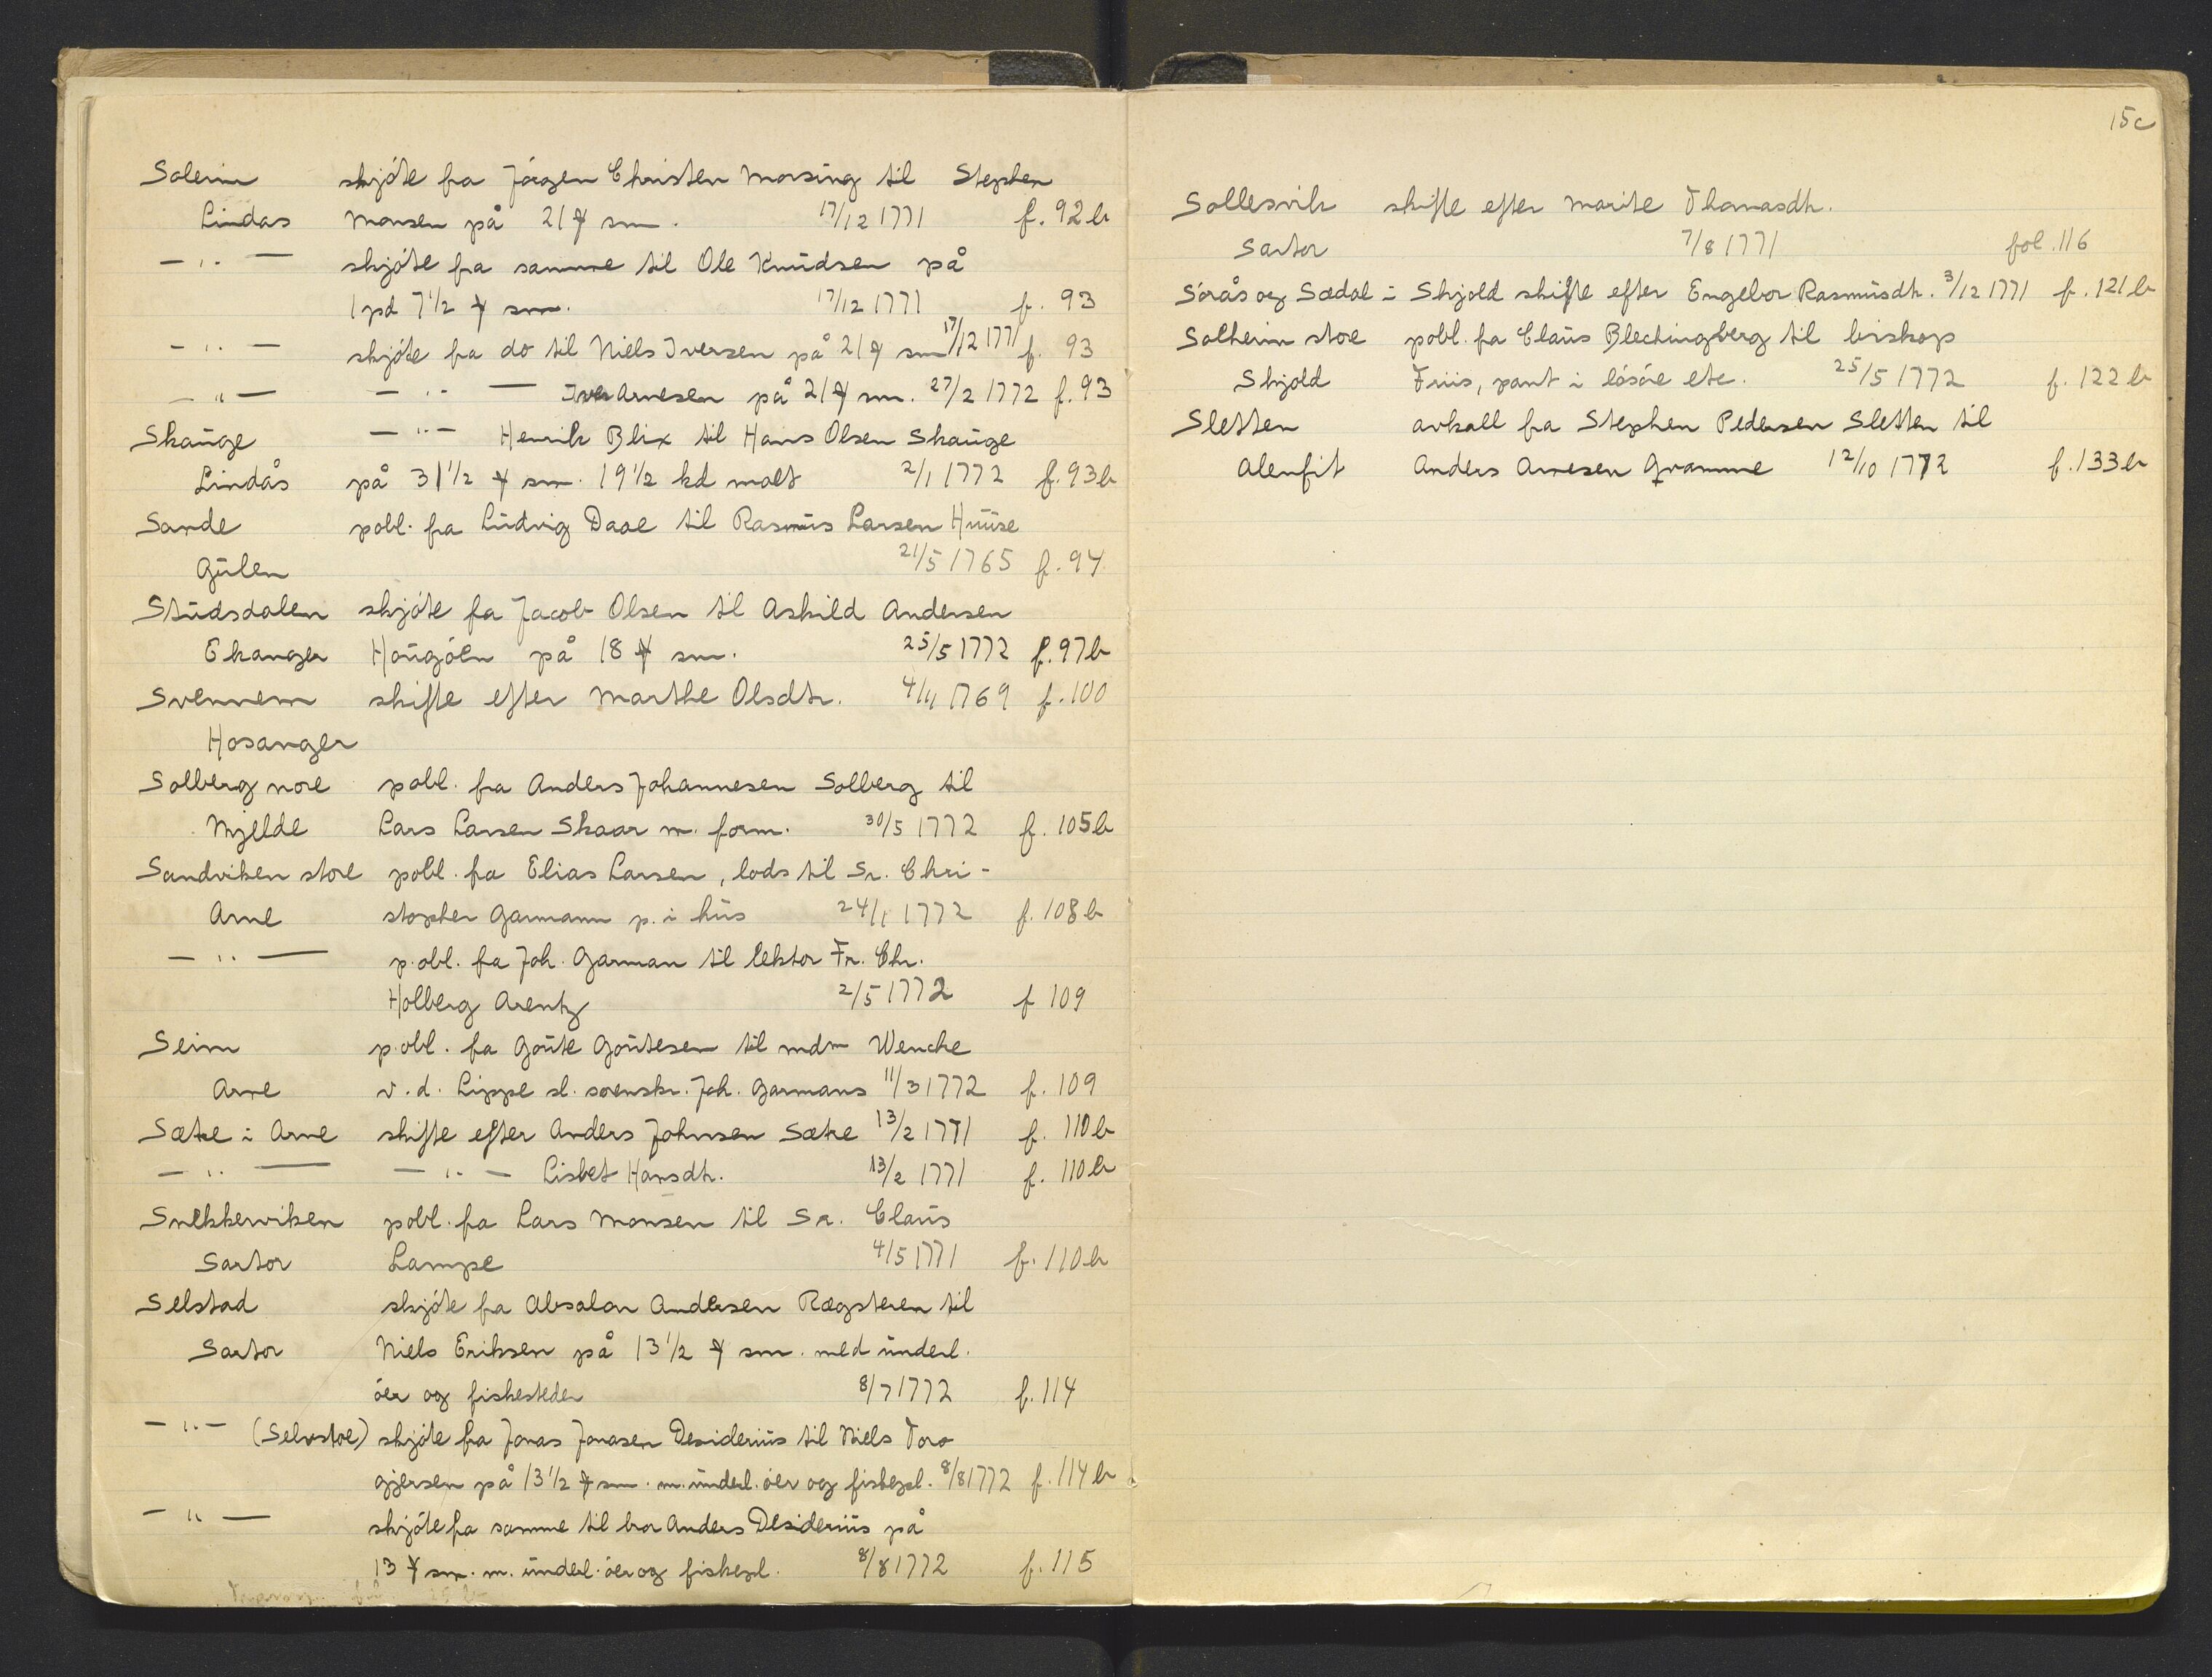 Soleim skjöte fra Jörgen Christen Morsing til Stephen
Lindås Monsen på 21 ℔ sm. 17/12 1771 f. 92b
— " — skjöte fra samme til Ole Knudsen på
1 pd 7 1/2 ℔ sm. 17/12 1771 f. 93
— " — skjöte fra do til Niels Iversen på 21 ℔ sm 17/12 1771 f. 93
— " — — " — Iver Arnesen på 21 ℔ sm. 27/2 1772 f. 93
Skauge — " — Henrik Blix til Hans Olsen Skauge
Lindås på 31 1/2 ℔ sm. 19 1/2 kd malt 2/1 1772 f. 93b
Sande pobl. fra Ludvig Daae til Rasmus Larsen Huuse
Gulen 21/5 1765 f. 94
Studsdalen skjöte fra Jacob Olsen til Askild Andersen
Ekanger Haugöen på 18 ℔ sm. 25/5 1772 f. 97b
Svennem skifte efter Marthe Olsdtr. 4/11 1769 f. 100
Hosanger
Solberg nore pobl. fra Anders Johannesen Solberg til
Mjelde Lars Larsen Skaar m. form. 30/5 1772 f. 105b
Sandviken store pobl. fra Elias Larsen, lods til Sr. Chri-
Arne stopher Garmann p. i hus 24/1 1772 f. 108b
— " — p.obl. fra Joh. Garman til lektor Fr. Chr.
Holberg Arentz 2/5 1772 f 109
Seim p.obl. fra Goute Goutesen til mdm Wencke
Arne v.d. Lippe sl. sorenskr. Joh. Garmans 11/3 1772 f. 109
Sætre i Arne skifte efter Anders Johnsen Sætre 13/2 1771 f. 110b
— " — — " — Lisbet Hansdtr. 13/2 1771 f. 110b
Snekkerviken pobl. fra Lars Monsen til Sr. Claus
Sartor Lampe 4/5 1771 f. 110b
Selstad skjöte fra Absalon Andersen Rægsteren til
Sartor Niels Eriksen på 13 1/2 ℔ sm. med underl.
öer og fiskesteder 8/7 1772 f. 114
— " — (Selvstoe) skjöte fra Jonas Jonasen Desiderius til Niels Tor-
gjersen på 13 1/2 ℔ sm. m. underl. öer og fiskepl. 8/8 1772 f. 114b
— " — skjöte fra samme til bror Anders Desiderius på
13 ℔ sm. m. underl. öer og fiskepl. 8/8 1772 f. 115
15c
Sollesvik skifte efter Marite Thomasdtr.
Sartor 7/8 1771 fol. 116
Sörås og Sædal i Skjold skifte efter Engebor Rasmusdtr. 3/12 1771 f. 121b
Solheim store pobl. fra Claus Blechingberg til biskop
Skjold Friis, pant i lösöre etc. 25/5 1772 f. 122b
Sletten avkall fra Stephen Pedersen Sletten til
Alenfit Anders Arnesen Qvamme 12/10 1772 f. 133b